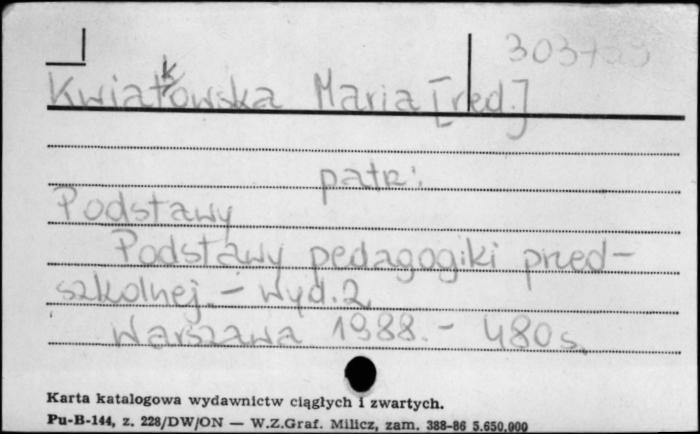 Kwiatkowska Maria [red.]
patrz:
Podstawy
Podstawy pedagogiki przed-
szkolnej. - Wyd. 2
Warszawa 1988. - 480 s.
Karta katalogowa wydawnictw ciągłych i zwartych.
Pu-B-144, z. 228/DW/ON — W.Z.Graf. Milicz, zam. 388-86 5.650.000